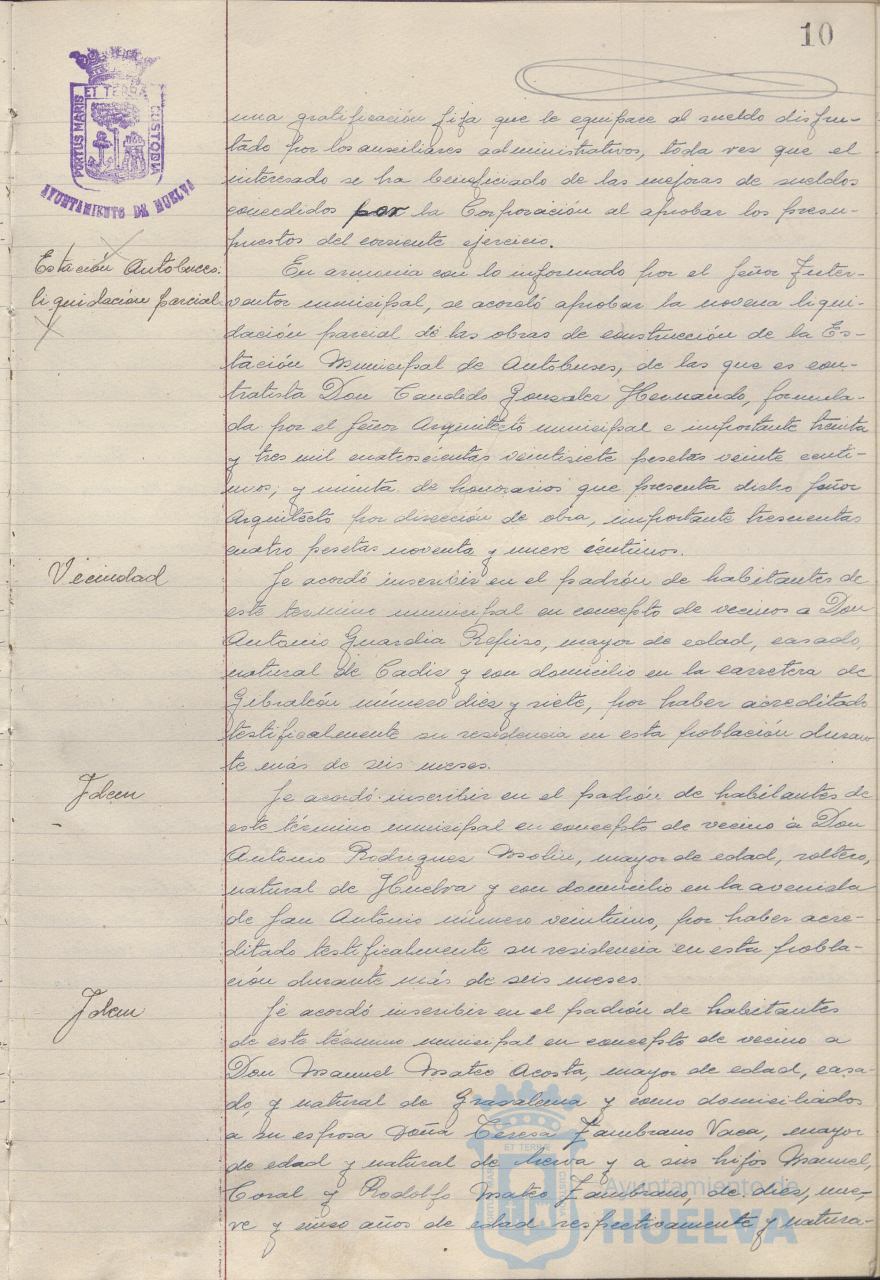 10
PORTUS MARIS ET TERRÆ CUSTODIA
AYUNTAMIENTO DE HUELVA
una gratificación fija que le equipace al sueldo disfru-
tado por los auxiliares administrativos, toda vez que el
interesado se ha beneficiado de las mejoras de sueldos
concedidos por la Corporación al aprobar los presu-
puestos del corriente ejercicio.
Estación Autobuses.
liquidación parcial
En armonia con lo informado por el Señor Inter-
ventor municipal, se acordó aprobar la novena liqui-
dación parcial de las obras de construcción de la Es-
tación Municipal de Autobuses, de las que es con-
tratista Don Candido Gonzalez Hernando, formula-
da por el Señor Arquitecto municipal e importante treinta
y tres mil cuatroscientas veintisiete pesetas veinte centi-
mos; y minuta de honorarios que presenta dicho Señor
Arquitecto por dirección de obra, importante trescientas
cuatro pesetas noventa y nueve centimos.
Vecindad
Se acordó inscribir en el padrón de habitantes de
este termino municipal en concepto de vecinos a Don
Antonio Guardia Refino, mayor de edad, casado,
natural de Cadiz y con domicilio en la carretera de
Gibraleón número diez y siete, por haber acreditado
testificalmente su residencia en esta población duran-
te más de seis meses.
Idem
Se acordó inscribir en el padrón de habitantes de
este término municipal en concepto de vecino a Don
Antonio Rodriguez Molin, mayor de edad, soltero,
natural de Huelva y con domicilio en la avenida
de San Antonio número veintiuno, por haber acre-
ditado testificalmente su residencia en esta pobla-
ción durante más de seis meses.
Idem
Se acordó inscribir en el padrón de habitantes
de este término municipal en concepto de vecino a
Don Manuel Mateo Acosta, mayor de edad, casa-
do, y natural de Grazalema y como domiciliados
a su esposa Doña Teresa Zambrano Vaca, mayor
de edad y natural de Nerva y a sus hijos Manuel,
Coral y Rodolfo Mateo Zambrano, de diez, nue-
ve y cinco años de edad respectivamente y natura-
Ayuntamiento de
HUELVA